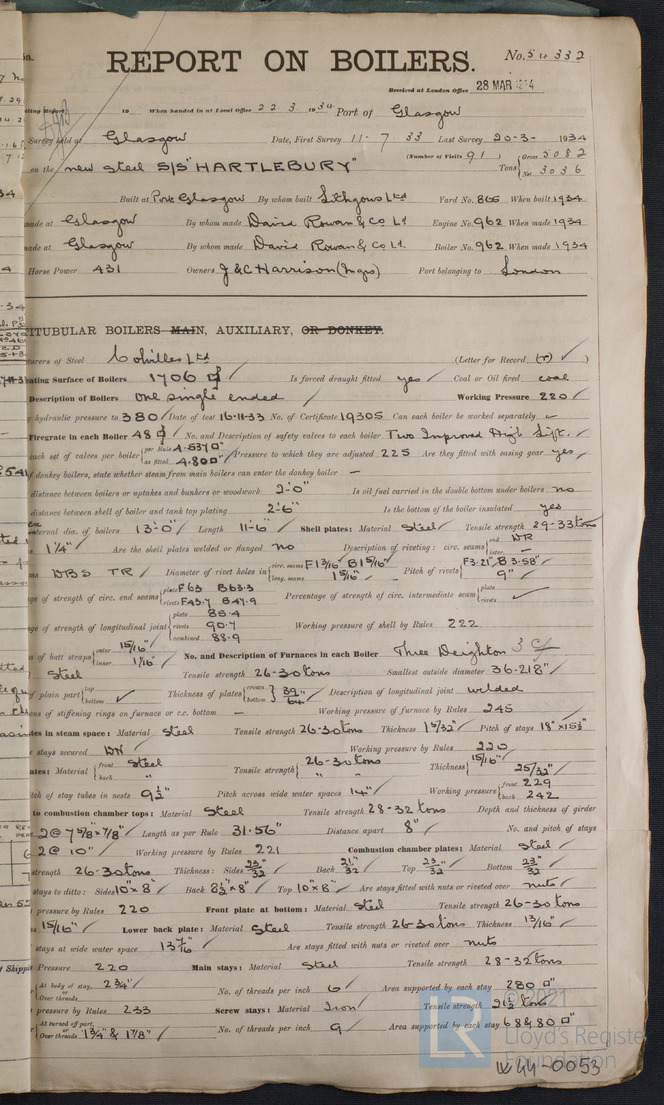 REPORT ON BOILERS.
No. 54332
Received at London Office 28 MAR
19 When handed in at Local Office 22.3.1934 Port of Glasgow
Survey held at Glasgow Date, First Survey 11-7-33 Last Survey 20-3-1934
on the new steel S/S "HARTLEBURY" (Number of Visits 91) Tons {Gross 5082 Net 3036
Built at Port Glasgow By whom built Lithgows Ltd Yard No. 865 When built 1934
made at Glasgow By whom made David Rowan & Co Ld Engine No. 962 When made 1934
made at Glasgow By whom made David Rowan & Co Ld Boiler No. 962 When made 1934
Horse Power 431 Owners J & C Harrison (Mgrs) Port belonging to London
ITUBULAR BOILERS MAIN, AUXILIARY, OR DONKEY.
turers of Steel Colvilles Ltd (Letter for Record (r) ✓ )
ating Surface of Boilers 1706 Is forced draught fitted yes Coal or Oil fired coal
Description of Boilers One single ended Working Pressure 220
y hydraulic pressure to 380 Date of test 16-11-33 No. of Certificate 19305 Can each boiler be worked separately ✓
Firegrate in each Boiler 48 No. and Description of safety valves to each boiler Two Improved High Lift.
each set of valves per boiler {per Rule 4.537 as fitted 4.80 Pressure to which they are adjusted 225 Are they fitted with easing gear yes
f donkey boilers, state whether steam from main boilers can enter the donkey boiler –
distance between boilers or uptakes and bunkers or woodwork 2'-0" Is oil fuel carried in the double bottom under boilers no
distance between shell of boiler and tank top plating 2'-6" Is the bottom of the boiler insulated yes
nternal dia. of boilers 13'-0" Length 11'-6" Shell plates: Material Steel Tensile strength 29-33 tons
1¼" Are the shell plates welded or flanged no Description of riveting: circ. seams {end DR inter. –
ms DBS TR Diameter of rivet holes in {circ. seams F 1 3/16" B 1 5/16" long. seams 1 5/16" Pitch of rivets {F 3.21" B 3.58" 9"
ge of strength of circ. end seams {plate F 63 B 63.3 rivets F 43.7 B 47.9 Percentage of strength of circ. intermediate seam {plate rivets ✓
ge of strength of longitudinal joint {plate 85.4 rivets 90.7 combined 88.9 Working pressure of shell by Rules 222
s of butt straps {outer 15/16" inner 1 1/16" No. and Description of Furnaces in each Boiler Three Deighton
Steel Tensile strength 26-30 tons Smallest outside diameter 36.218"
f plain part {top bottom ✓ Thickness of plates {crown bottom 39/64" Description of longitudinal joint welded
ons of stiffening rings on furnace or c.c. bottom – Working pressure of furnace by Rules 245
tes in steam space: Material Steel Tensile strength 26-30 tons Thickness 1 5/32" Pitch of stays 18" x 15½"
e stays secured DN Working pressure by Rules 220
ates: Material {front Steel back " Tensile strength {26-30 tons " " Thickness {15/16" 25/32"
tch of stay tubes in nests 9½" Pitch across wide water spaces 14" Working pressure {front 229 back 242
to combustion chamber tops: Material Steel Tensile strength 28-32 tons Depth and thickness of girder
2 @ 7 5/8 x 7/8" Length as per Rule 31.56" Distance apart 8" No. and pitch of stays
2 @ 10" Working pressure by Rules 221 Combustion chamber plates: Material Steel
strength 26-30 tons Thickness: Sides 23/32 Back 21/32" Top 23/32 Bottom 23/32
stays to ditto: Sides 10" x 8" Back 8½" x 8" Top 10" x 8" Are stays fitted with nuts or riveted over nuts
pressure by Rules 220 Front plate at bottom: Material Steel Tensile strength 26-30 tons
15/16" Lower back plate: Material Steel Tensile strength 26-30 tons Thickness 13/16"
stays at wide water space 13 7/16" Are stays fitted with nuts or riveted over nuts
Pressure 220 Main stays: Material Steel Tensile strength 28-32 tons
At body of stay, or Over threads 2¾" No. of threads per inch 6 Area supported by each stay 280
pressure by Rules 233 Screw stays: Material Iron Tensile strength 21½ tons
At turned off part, or Over threads 1¾" & 1 7/8" No. of threads per inch 9 Area supported by each stay 68 & 80
© 2021
LR
Lloyd's Registe
Foundation
W44-0053